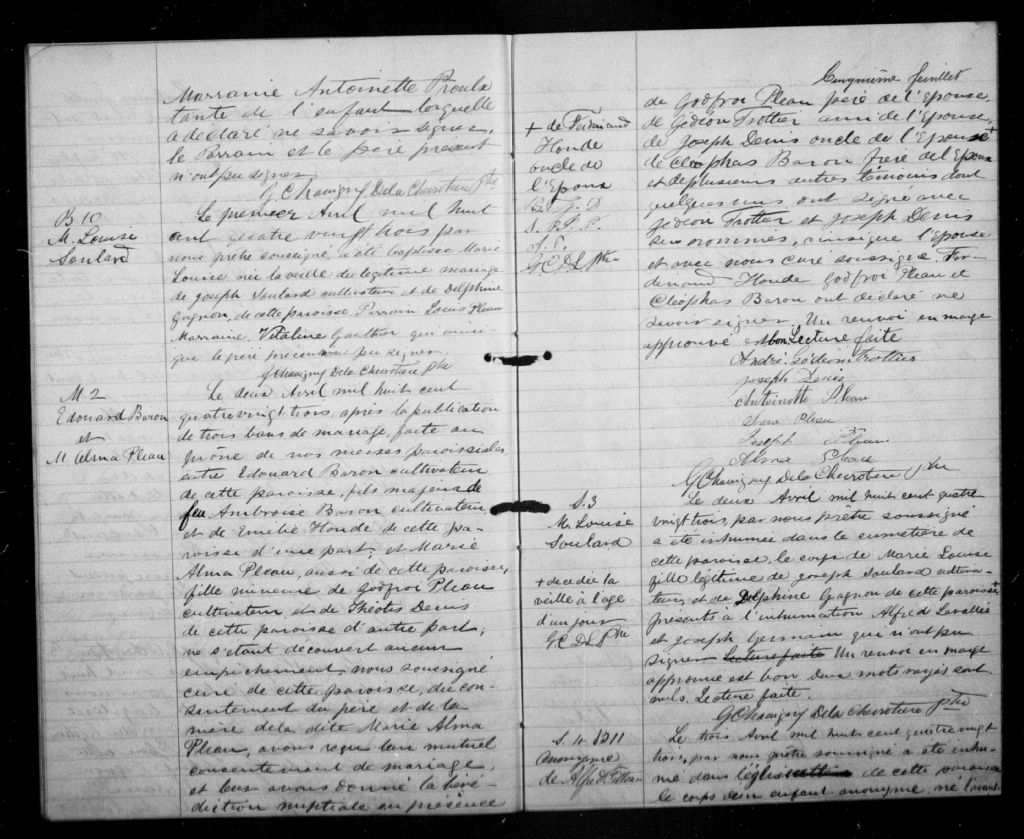 Marraine Antoinette Proulx
tante de l'enfant laquelle
a déclaré ne savoir signer,
le Parrain et le père présent
n'ont pu signer.
G Chavigny De la Chevrotiere Ptre
B 10
M. Louise
Soulard
Le premier Avril mil huit
cent quatre vingt trois par
nous prêtre soussigné, a été baptisée Marie
Louise née la veille du légitime mariage
de Joseph Soulard cultivateur et de Delphine
Gagnon, de cette paroisse. Parrain Louis Pleau
Marraine, Vitaline Gauthier qui ainsi
que le père présent n'ont pu signer
G Chavigny De la Chevrotiere Ptre
M 2
Edouard Baron
et
M Alma Pleau
Le deux Avril mil huit cent
quatrevingt trois, après la publication
de trois bans de mariage, faite au
prône de nos messes paroissiales
entre Edouard Baron cultivateur
de cette paroisse, fils majeur de
feu Ambroise Baron cultivateur
et de Emilie Houde de cette pa-
roisse d'une part; et Marie
Alma Pleau, aussi de cette paroisse,
fille mineure de Godfroi Pleau
cultivateur et de Théotis Denis
de cette paroisse d'autre part;
ne s'étant découvert aucun
empêchement nous soussigné
curé de cette paroisse, du con-
sentement du père et de la
mère de la dite Marie Alma
Pleau, avons reçu leur mutuel
consentement de mariage,
et leur avons donné la béné-
diction nuptiale en présence
Cinquième feuillet
de Godfroi Pleau père de l'Epouse,
de Gédéon Trottier ami de l'épouse,
de Joseph Denis oncle de l'Epouse +
de Cléophas Baron frère de l'Epoux
et de plusieurs autres témoins dont
quelques uns ont signé avec
Gédéon Trottier et Joseph Denis
sus nommés, ainsi que l'Epouse
et avec nous curé soussigné. Fer-
dinand Houde Godfroi Pleau et
Cléophas Baron ont déclaré ne
savoir signer. Un renvoi en marge
approuvé est bon. Lecture faite
+ de Ferdinand
Houde
oncle de
l'Epoux
G C D L Ptre
André Gédéon Trottier
Joseph Denis
Antoinette Pleau
Pleau
Joseph Pleau
Alma Pleau
G Chavigny De la Chevrotiere Ptre
S. 3
M. Louise
Soulard
+ décédée la
veille à l'age
d'un jour
G C D L Ptre
Le deux Avril mil huit cent quatre
vingt trois, par nous prêtre soussigné
a été inhumée dans le cimetière de
cette paroisse, le corps de Marie Louise
fille légitime de Joseph Soulard cultiva-
teur, et de Delphine Gagnon de cette paroisse +
présents à l'inhumation Alfred Lavallée
et Joseph Germain qui n'ont pu
signer Lecture faite Un renvoi en marge
approuvé est bon Deux mots rayés sont
nuls. Lecture faite.
G Chavigny De la Chevrotiere Ptre
S. 4
anonyme
de Alfred
Le trois Avril mil huit cent quatre vingt
trois, par nous prêtre soussigné a été inhu-
mé dans l'église de cette paroisse
le corps d'un enfant anonyme, né l'avant